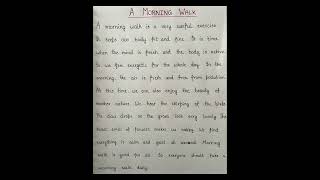 A MORNING WALK
A morning walk is a very useful exercise
It keeps our body fit and fine. It is time
when the mind is fresh and the body is active.
So we feel energetic for the whole day. In the
morning, the air is fresh and free from pollution.
At this time we can also enjoy the beauty of
mother nature. We hear the chirping of the birds.
The dew drops on the grass look very lovely. The
sweet smell of flowers makes us merry. We find
everything is calm and quiet all around. Morning
walk is good for all. So everyone should take a
morning walk daily.